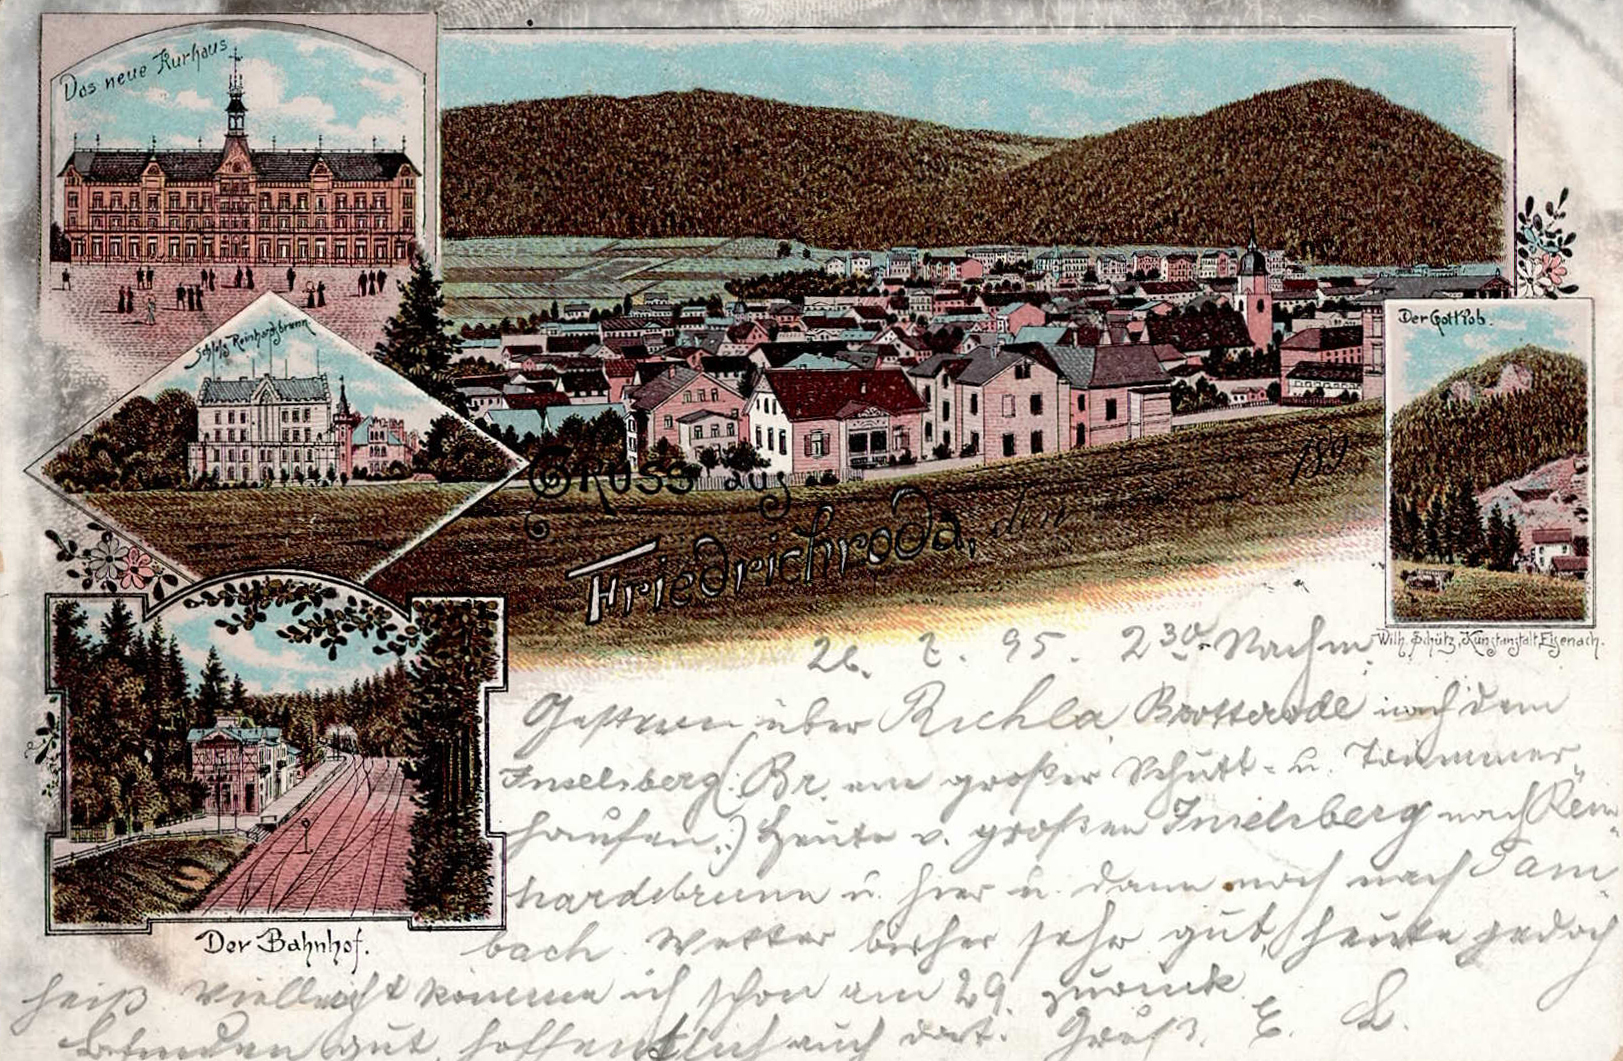 Das neue Kurhaus
Schloß Reinhardsbrunn
Der Gottlob.
Gruss aus
Friedrichroda, den 189
Wilh. Schütz, Kunstanstalt, Eisenach.
Der Bahnhof.
7. 95. 2 30 Nachm.
Gestern über Brotterode nach dem
Inselsberg (Br. ein großer Schutt- u. Trümmer-
haufen.) Heute v. großen Inselsberg nach Rein
hardsbrunn u. hier u. dann noch nach Tam
bach Wetter bisher sehr gut, heute jedoch
heiß Vielleicht komme ich schon am 29. zurück
Befinden gut, hoffentlich auch dort. Gruß. E. L.